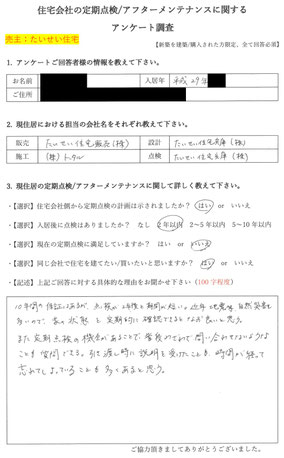 住宅会社の定期点検/アフターメンテナンスに関する
アンケート調査
売主：たいせい住宅
【新築を建築/購入された方限定、全て回答必須】
1. アンケートご回答者様の情報を教えて下さい。
お名前
入居年
平成29年
ご住所
2. 現住居における担当の会社名をそれぞれ教えて下さい。
販売 たいせい住宅販売(株) 設計 たいせい住宅兵庫(株)
施工 (株)トータル 点検 たいせい住宅兵庫(株)
3. 現住居の定期点検/アフターメンテナンスに関して詳しく教えて下さい。
・【選択】住宅会社側から定期点検の計画は示されましたか？ はい or いいえ
・【選択】入居後に点検はありましたか？ なし 2年以内 2〜5年以内 5〜10年以内
・【選択】現在の定期点検に満足していますか？ はい or いいえ
・【選択】同じ会社で住宅を建てたい/買いたいと思いますか？ はい or いいえ
・【記述】上記ご回答に対する具体的な理由をお聞かせ下さい（100字程度）
10年間の保証にあるが、点検が2年後と期間が短い。近年地震等自然災害も
多いので、家の状態を定期的に確認できるとなお良いと思う。
また定期点検の機会があることで、普段わざわざ問い合わせないような
ことも質問できる。引き渡し時に説明を受けたことも、時間が経って
忘れてしまっていることも多くあると思う。
ご協力頂きましてありがとうございました。